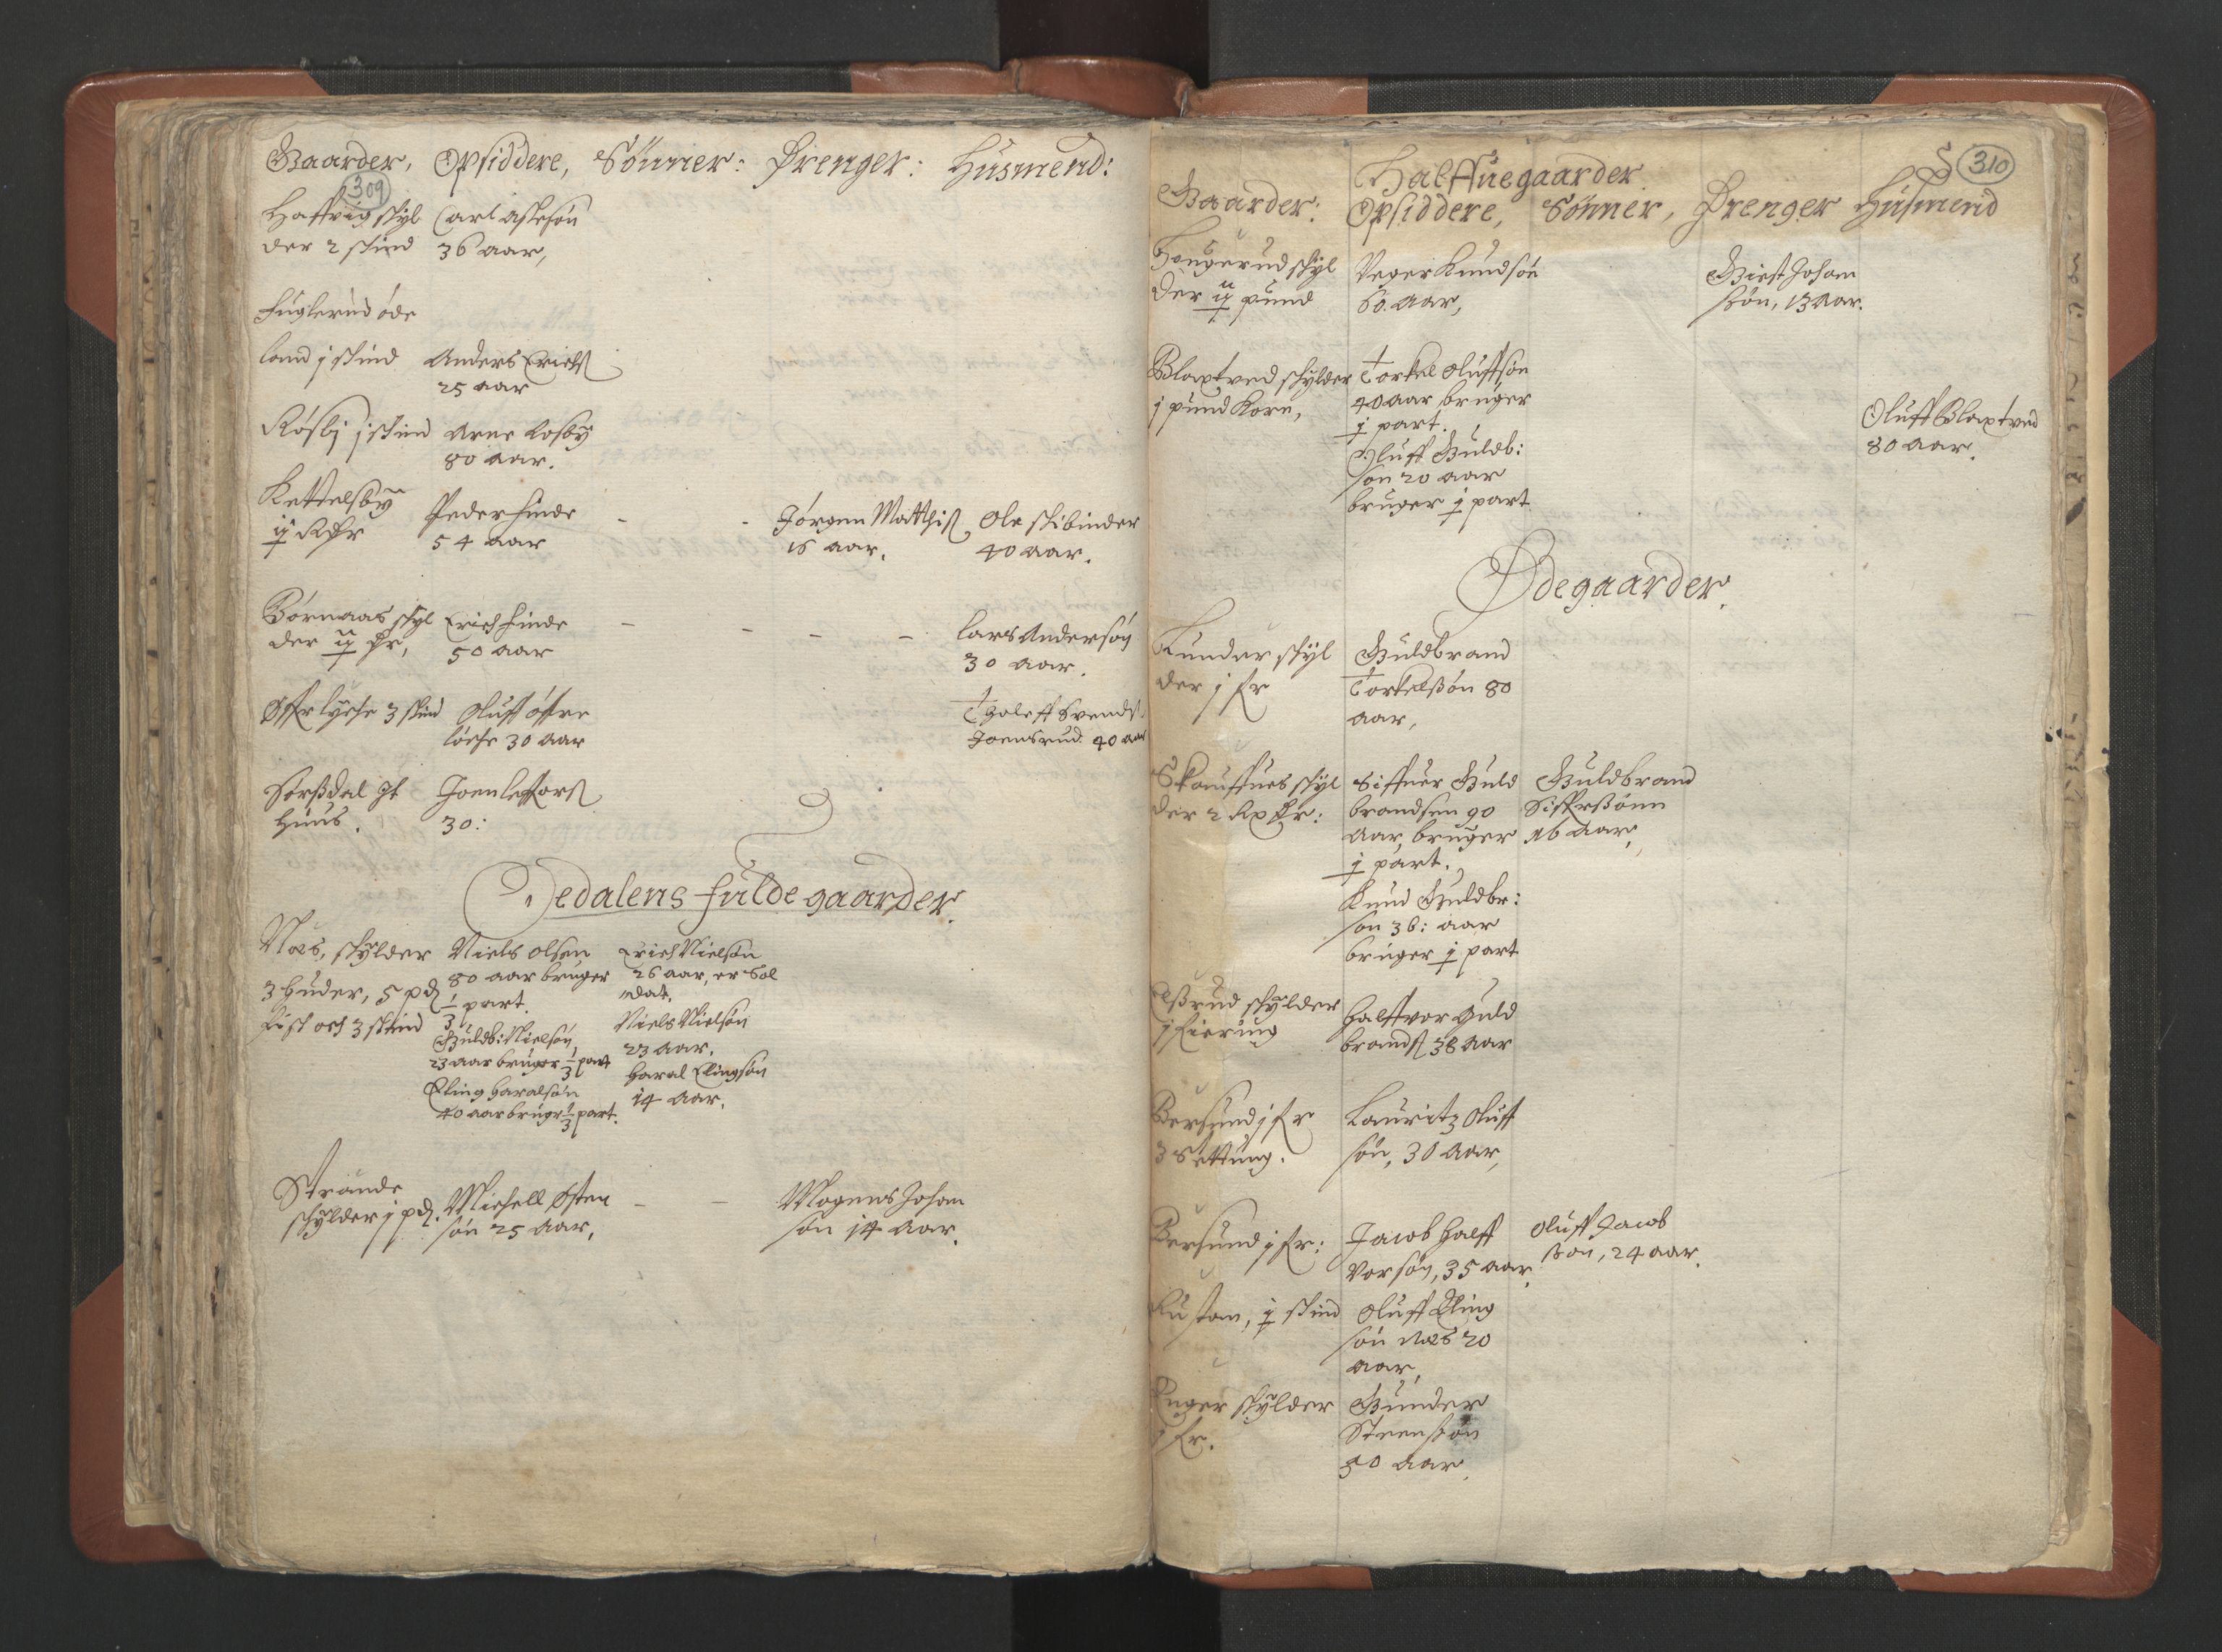 Gaarder, Opsiddere, Sønner: Drenger: Husmend:
309
Haffvig skyl
der 2 skind
Carl Askesøn
36 aar,
Fuglerud øde
land j skind
Anders Erichs
25 aar
Røsbj j skind
Arne Rosby
80 aar.
Kettelsby
Peder Finde
54 aar
Jørgenn Matthis
16 aar.
Ole skibinder
40 aar.
Børnaas skyl
der
Erich Finde
50 aar
Lars Andersøn
30 aar.
3 skind
Oluff øfre
30 aar
Svends
Joensrud 40 aar
Sørssdal Jt
Huus.
Joen
30:
Dedalens fulde gaarder.
Næs, skylder
3 huder, 5 pd
fisk och 3 skind
Niels Olsen
80 aar bruger
1/3 part.
Guldb: Nielsøn,
23 aar bruger 1/3 part
Elling Haralsøn
40 aar brugr 1/3 part.
Erich Nielsøn
26 aar, er Sol
dat,
Niels Nielsøn
23 aar.
Haral Ellingsøn
14 aar.
Strande
skylder j pd.
Michell Østen
søn 25 aar,
Mogens Johan
søn 14 aar.
310
Halffue gaarder
Gaarder: Opsiddere, Sønner, Drenger Husmend
Hougerud skyl
der ij pund
Veger Knudsøn
60 aar,
Giest Johan
søn, 13 aar.
Blaxtved skylder
j pund Korn,
Torkel Oluffsøn
40 aar bruger
j part.
Oluff Guldb:
søn 20 aar
bruger j part
Oluff Blaxtved
80 aar.
Ødegaarder.
Lunder skyl
der j fr
Guldbrand
Torkelssøn 80
aar,
Skouffues skyl
der 2
Siffuer Guld
brandsen 90
aar, bruger
j part.
Knud Guldbr:
søn 36: aar
bruger j part
Guldbrand
Siffrssønn
16 aar,
skylder
j fierung
Halffvor Guld
brands 38 aar
Bersund j fr
3 Settung.
Lauritz Oluff
søn, 30 aar,
Bersund j fr:
Jacob Halff
vorsøn, 35 aar.
Oluff Jacob
søn, 24 aar.
Rustan, j skind
Oluff Elling
søn Næs 20
aar,
Enger skylder
j fr.
Gunder
Steenssøn
50 aar.